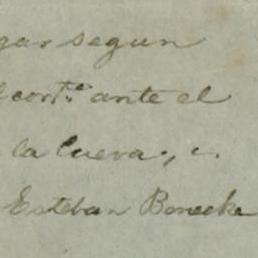 gar segun
l cort.e ante el
la Cueva., c.
Esteban Bonecke